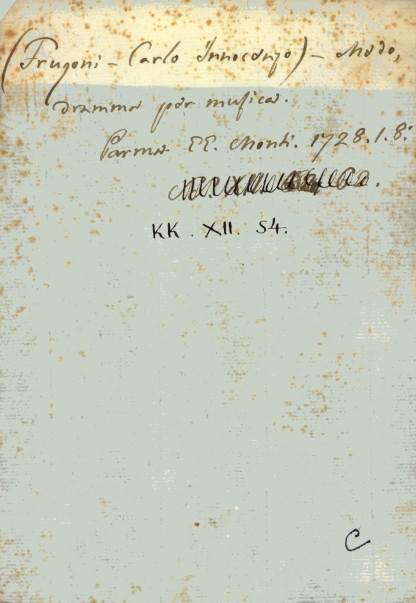 (Frugoni - Carlo Innocenzo) - Medo,
dramma per musica.
Parma EE. Monti. 1728. 1. 8:
KK. XII. 54.
C